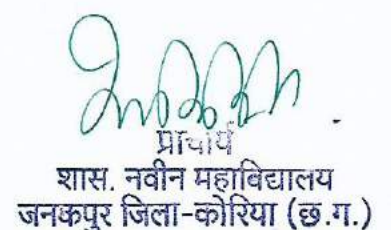 प्राचार्य
शास. नवीन महाविद्यालय
जनकपुर जिला-कोरिया (छ.ग.)